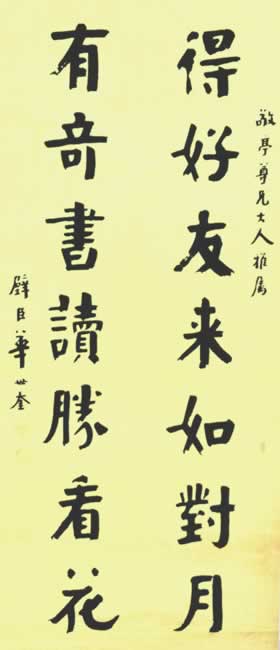 敬亭尊兄大人雅属
得好友来如對月
有奇書讀勝看花
璧臣華世奎